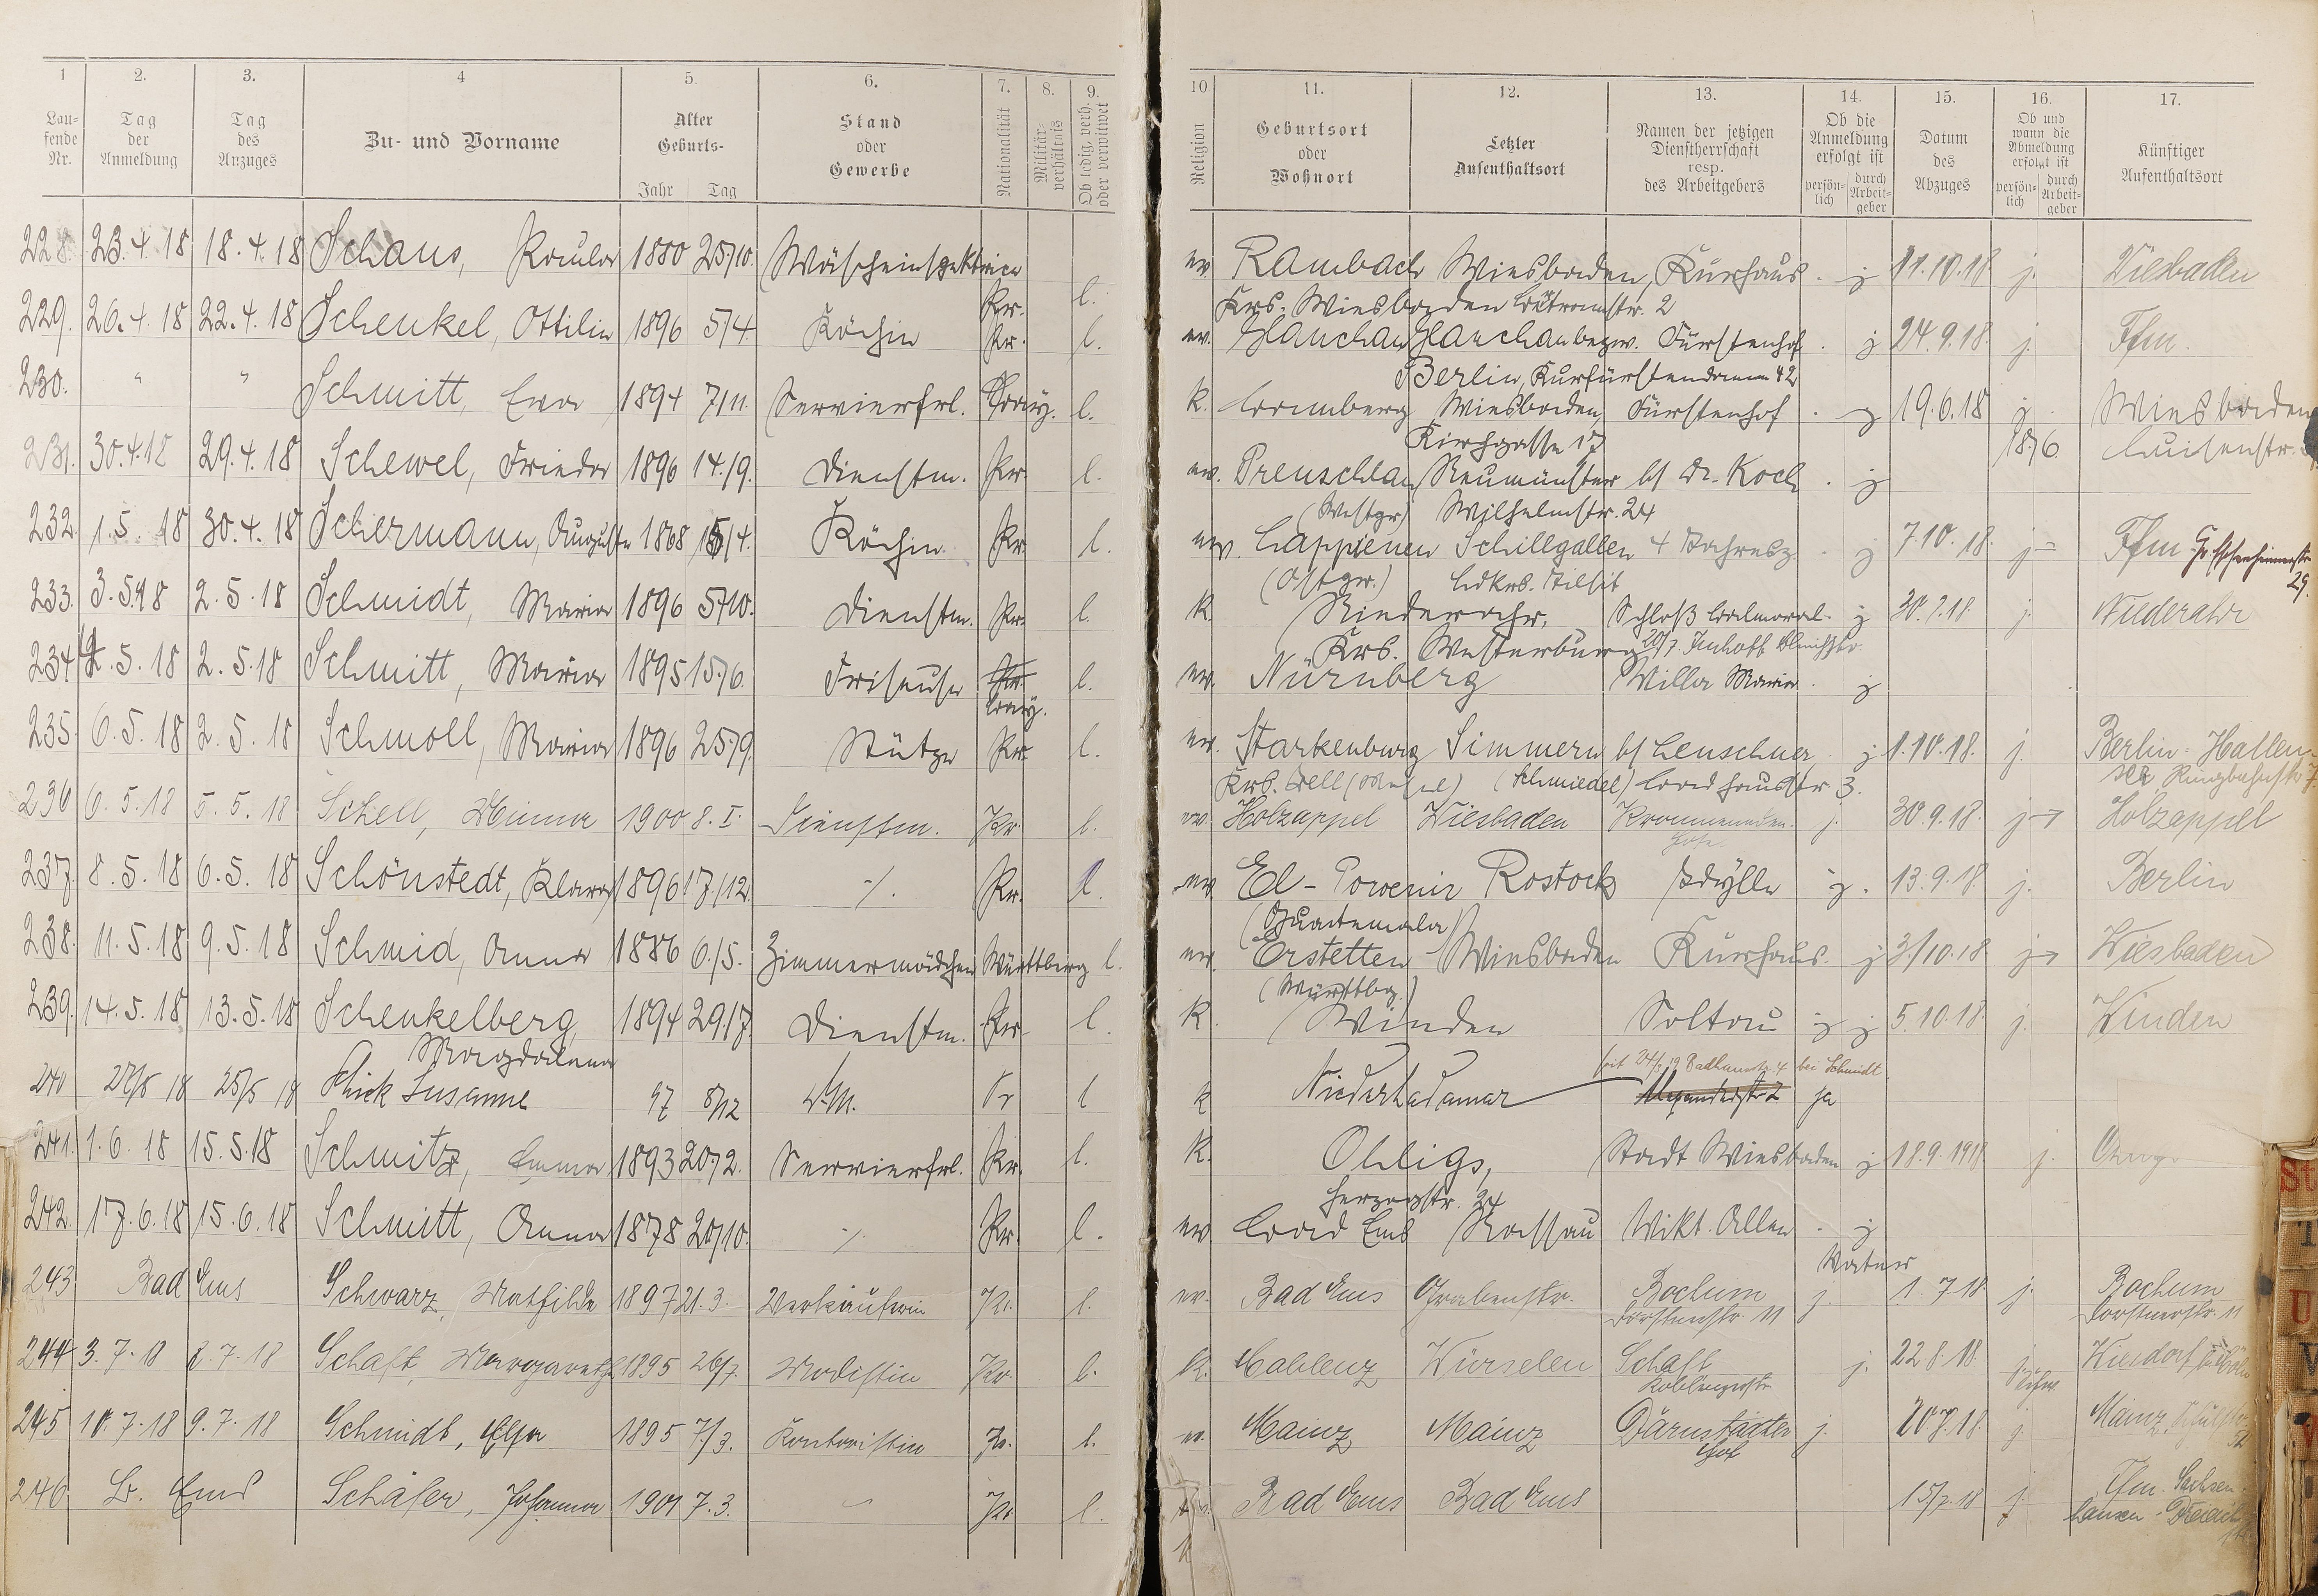 1 2. 3. 4 5. 6. 7. 8. 9. 10 11. 12. 13. 14. 15. 16. 17.
Lau-
fende
Nr.
Tag
der
Anmeldung
Tag
des
Anzuges
Zu- und Vorname
Alter
Geburts-
Jahr Tag
Stand
oder
Gewerbe
Nationalität
Militär-
verhältnis
Ob ledig, verh.
oder verwitwet
Religion
Geburtsort
oder
Wohnort
Letzter
Aufenthaltsort
Namen der jetzigen
Dienstherrschaft
resp.
des Arbeitgebers
Ob die
Anmeldung
erfolgt ist
persön-
lich
durch
Arbeit-
geber
Datum
des
Abzuges
Ob und
wann die
Abmeldung
erfolgt ist
persön-
lich
durch
Arbeit-
geber
Künftiger
Aufenthaltsort
228. 23.4.18 18.4.18 Schaus, Paula 1880 25/10. Wäscheinspektrice Pr. l. ev. Rambach Wiesbaden, Kurhaus j 11.10.18 j. Wiesbaden
Krs. Wiesbaden 2
229. 26.4.18 22.4.18 Schenkel, Ottilie 1896 5/4. Köchin Pr. l. ev. Glauchau Glauchau bezw. Fürstenhof j 24.9.18. j. Ffm.
Berlin, Kurfürstendamm 42
230. " " Schmitt, Eva 1894 7/11. Servierfrl. Bay. l. k. Bamberg Wiesbaden, Fürstenhof j 19.6.18 j. Wiesbaden
Kirchgasse 17 18/6 Luisenstr.
231. 30.4.18 29.4.18 Schewel, Frieda 1896 14./9. Dienstm. Pr. l. ev. Preuschlau Neumünster bf Dr. Koch j
(Westpr.) Wilhelmstr. 24
232. 1.5.18 30.4.18 Schermann, Auguste 1868 15/4. Köchin Pr. l. ev. Lappienen Schillgallen 4 Jahresz. j 7.10.18. j Ffm
(Ostpr.) Ldkrs. Tilsit 29.
233. 3.5.18 2.5.18 Schmidt, Maria 1896 5/10. Dienstm. Pr. l. k. Niederahr, Schloß Balmoral j 30.9.18 j. Niederahr
Krs. Westerburg 20/7. Imhoff
234 2.5.18 2.5.18 Schmitt, Maria 1895 15./6. Friseuse Pr. l. ev. Nürnberg Villa Maria j
Bay.
235. 6.5.18 2.5.18 Schmoll, Maria 1896 25./9. Stütze Pr. l. ev. Starkenburg Simmern bf Leuschner j 1.10.18. j. Berlin-Hallen-
Krs. Zell (Mosel) (Schmiedel) Badhausstr. 3. see Ringbahnstr. 7.
236 6.5.18 5.5.18 Schell, Minna 1900 8.I. Dienstm. Pr. l. ev. Holzappel Wiesbaden j. 30.9.18. j Holzappel
237. 8.5.18 6.5.18 Schönstedt, Klara 1896 17./12. -/. Pr. l. ev. El-Porvenir Rostock Idylle j. 13.9.18 j. Berlin
(Guatemala)
238. 11.5.18 9.5.18 Schmid, Anna 1886 6./5. Zimmermädchen Württberg l. ev. Erstetten Wiesbaden Kurhaus. j 3/10.18 j Wiesbaden
(Württbg.)
239. 14.5.18 13.5.18 Schenkelberg, 1894 29./7. Dienstm. Pr. l. k. Winden Soltau j j 5.10.18 j. Winden
Magdalena
seit 24/3 19 Badhausstr. 4 bei Schmidt
240 27/5 18 25/5 18 Schick Susanne 97 8/12 D.M. Pr l k Niederhadamar Alexanderstr 2 ja
241. 1.6.18 15.5.18 Schmitz, Emma 1893 20./2. Servierfrl. Pr. l. k. Ohligs, Stadt Wiesbaden j 18.9.1918. j.
Herzogstr. 24
242. 17.6.18 15.6.18 Schmitt, Anna 1878 20/10. -/. Pr. l. ev Bad Ems Nassau Vikt. Allee j
Vater
243 Bad Ems Schwarz, Mathilde 1897 21.3. Verkäuferin Pr. l. ev. Bad Ems Grabenstr. Bochum j. 1.7.18. j. Bochum
Dorstenerstr. 11 Dorstenerstr. 11
244 3.7.18 2.7.18 Schaft, Margareth 1895 26/7. Modistin Pr. l. k. Coblenz Würselen Schaft j. 22.8.18. j.
Koblenzerstr
245 10.7.18 9.7.18 Schmidt, Elsa 1895 7/3. Kontoristin Pr. l. ev. Mainz Mainz Därnstädter j. 20.7.18. j. Mainz,
Hof
246 B. Ems Schäfer, Johanna 1901 7.3. Pr. l. ev. Bad Ems Bad Ems 15/7.18 j. Ffm. Sachsen-
hausen